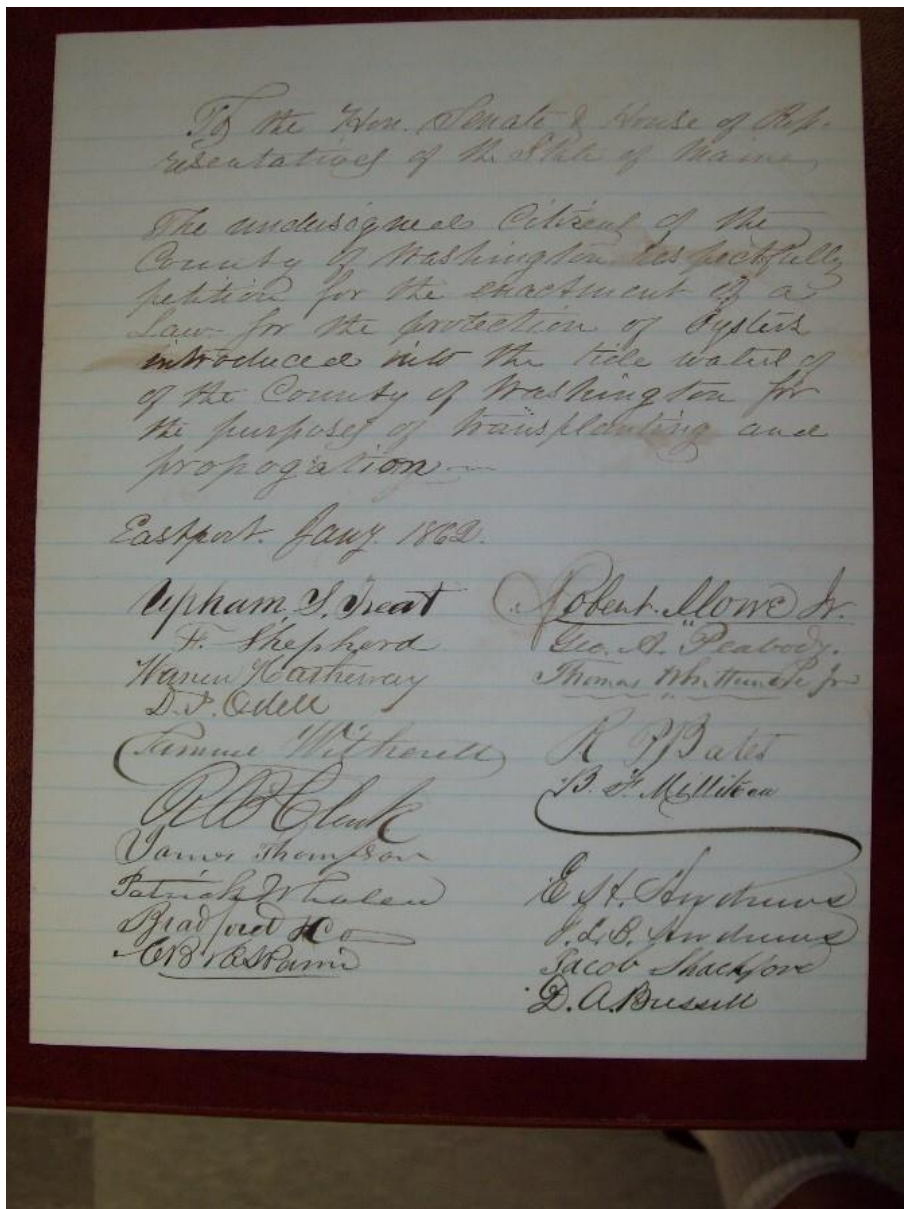 To the Hon. Senate & House of Rep-
resentatives of the State of Maine
The undersigned Citizens of the
County of Washington respectfully
petition for the enactment of a
Law for the protection of Oysters
introduced into the tide waters of
of the County of Washington for
the purposes of transplanting and
propogation
Eastport. Jany. 1862.
Upham S. Treat
F. Shepherd
Warren Hatheway
D. P. Odell
Witherell
Clark
James Thompson
Patrick Whalen
Bradford & Co
Robert Mowe Jr.
Geo. A. Peabody.
Thomas Jr
R P Bates
B. F. Milliken
E. H. Andrews
Andrews
Jacob Shackford
D. A. Bussell